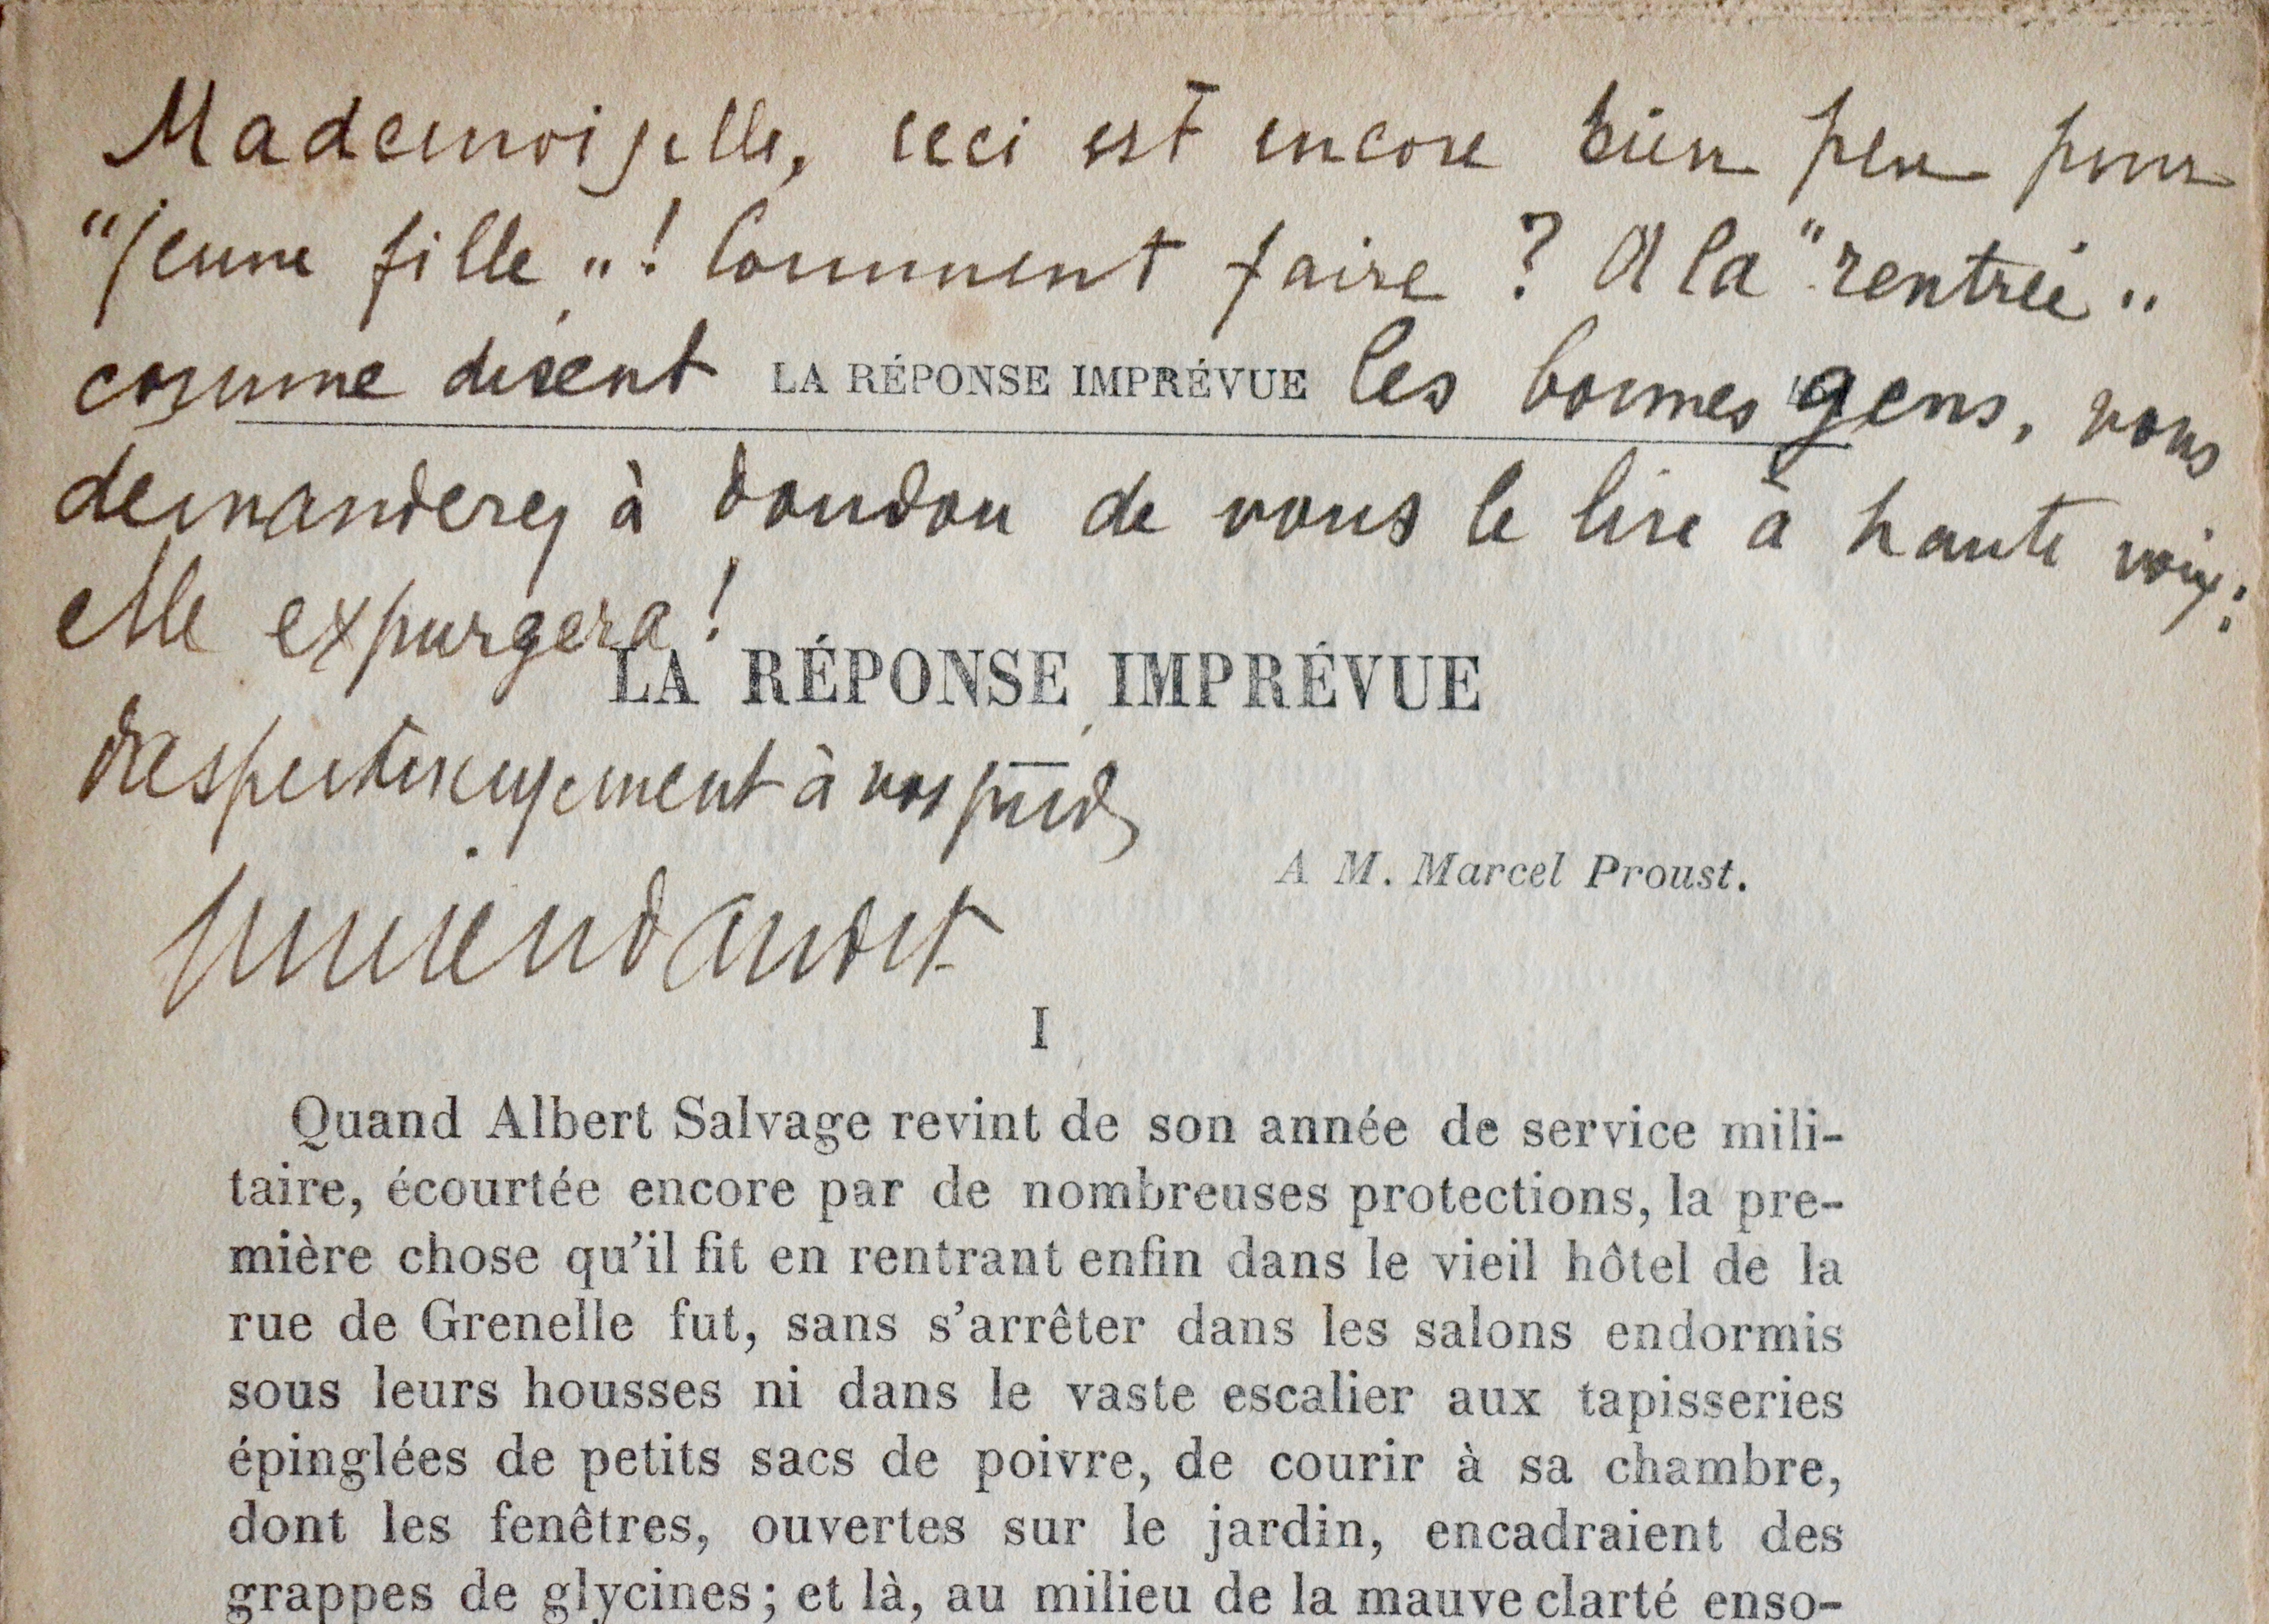 Mademoiselle, ceci est encore bien peu pour
"jeune fille" ! Comment faire ? A la "rentrée"
comme disent LA RÉPONSE IMPRÉVUE les bonnes gens, vous
demanderez à Doudou de vous le lire à haute voix :
elle expurgera !
LA RÉPONSE IMPRÉVUE
Respectueusement à vos pieds
A M. Marcel Proust.
Lucien Daudet
I
Quand Albert Salvage revint de son année de service mili-
taire, écourtée encore par de nombreuses protections, la pre-
mière chose qu'il fit en rentrant enfin dans le vieil hôtel de la
rue de Grenelle fut, sans s'arrêter dans les salons endormis
sous leurs housses ni dans le vaste escalier aux tapisseries
épinglées de petits sacs de poivre, de courir à sa chambre,
dont les fenêtres, ouvertes sur le jardin, encadraient des
grappes de glycines ; et là, au milieu de la mauve clarté enso-